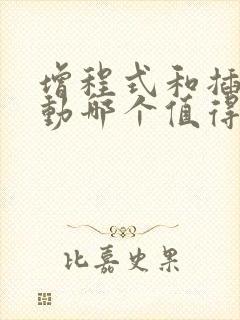 增程式和插
动哪个值得
比嘉史果